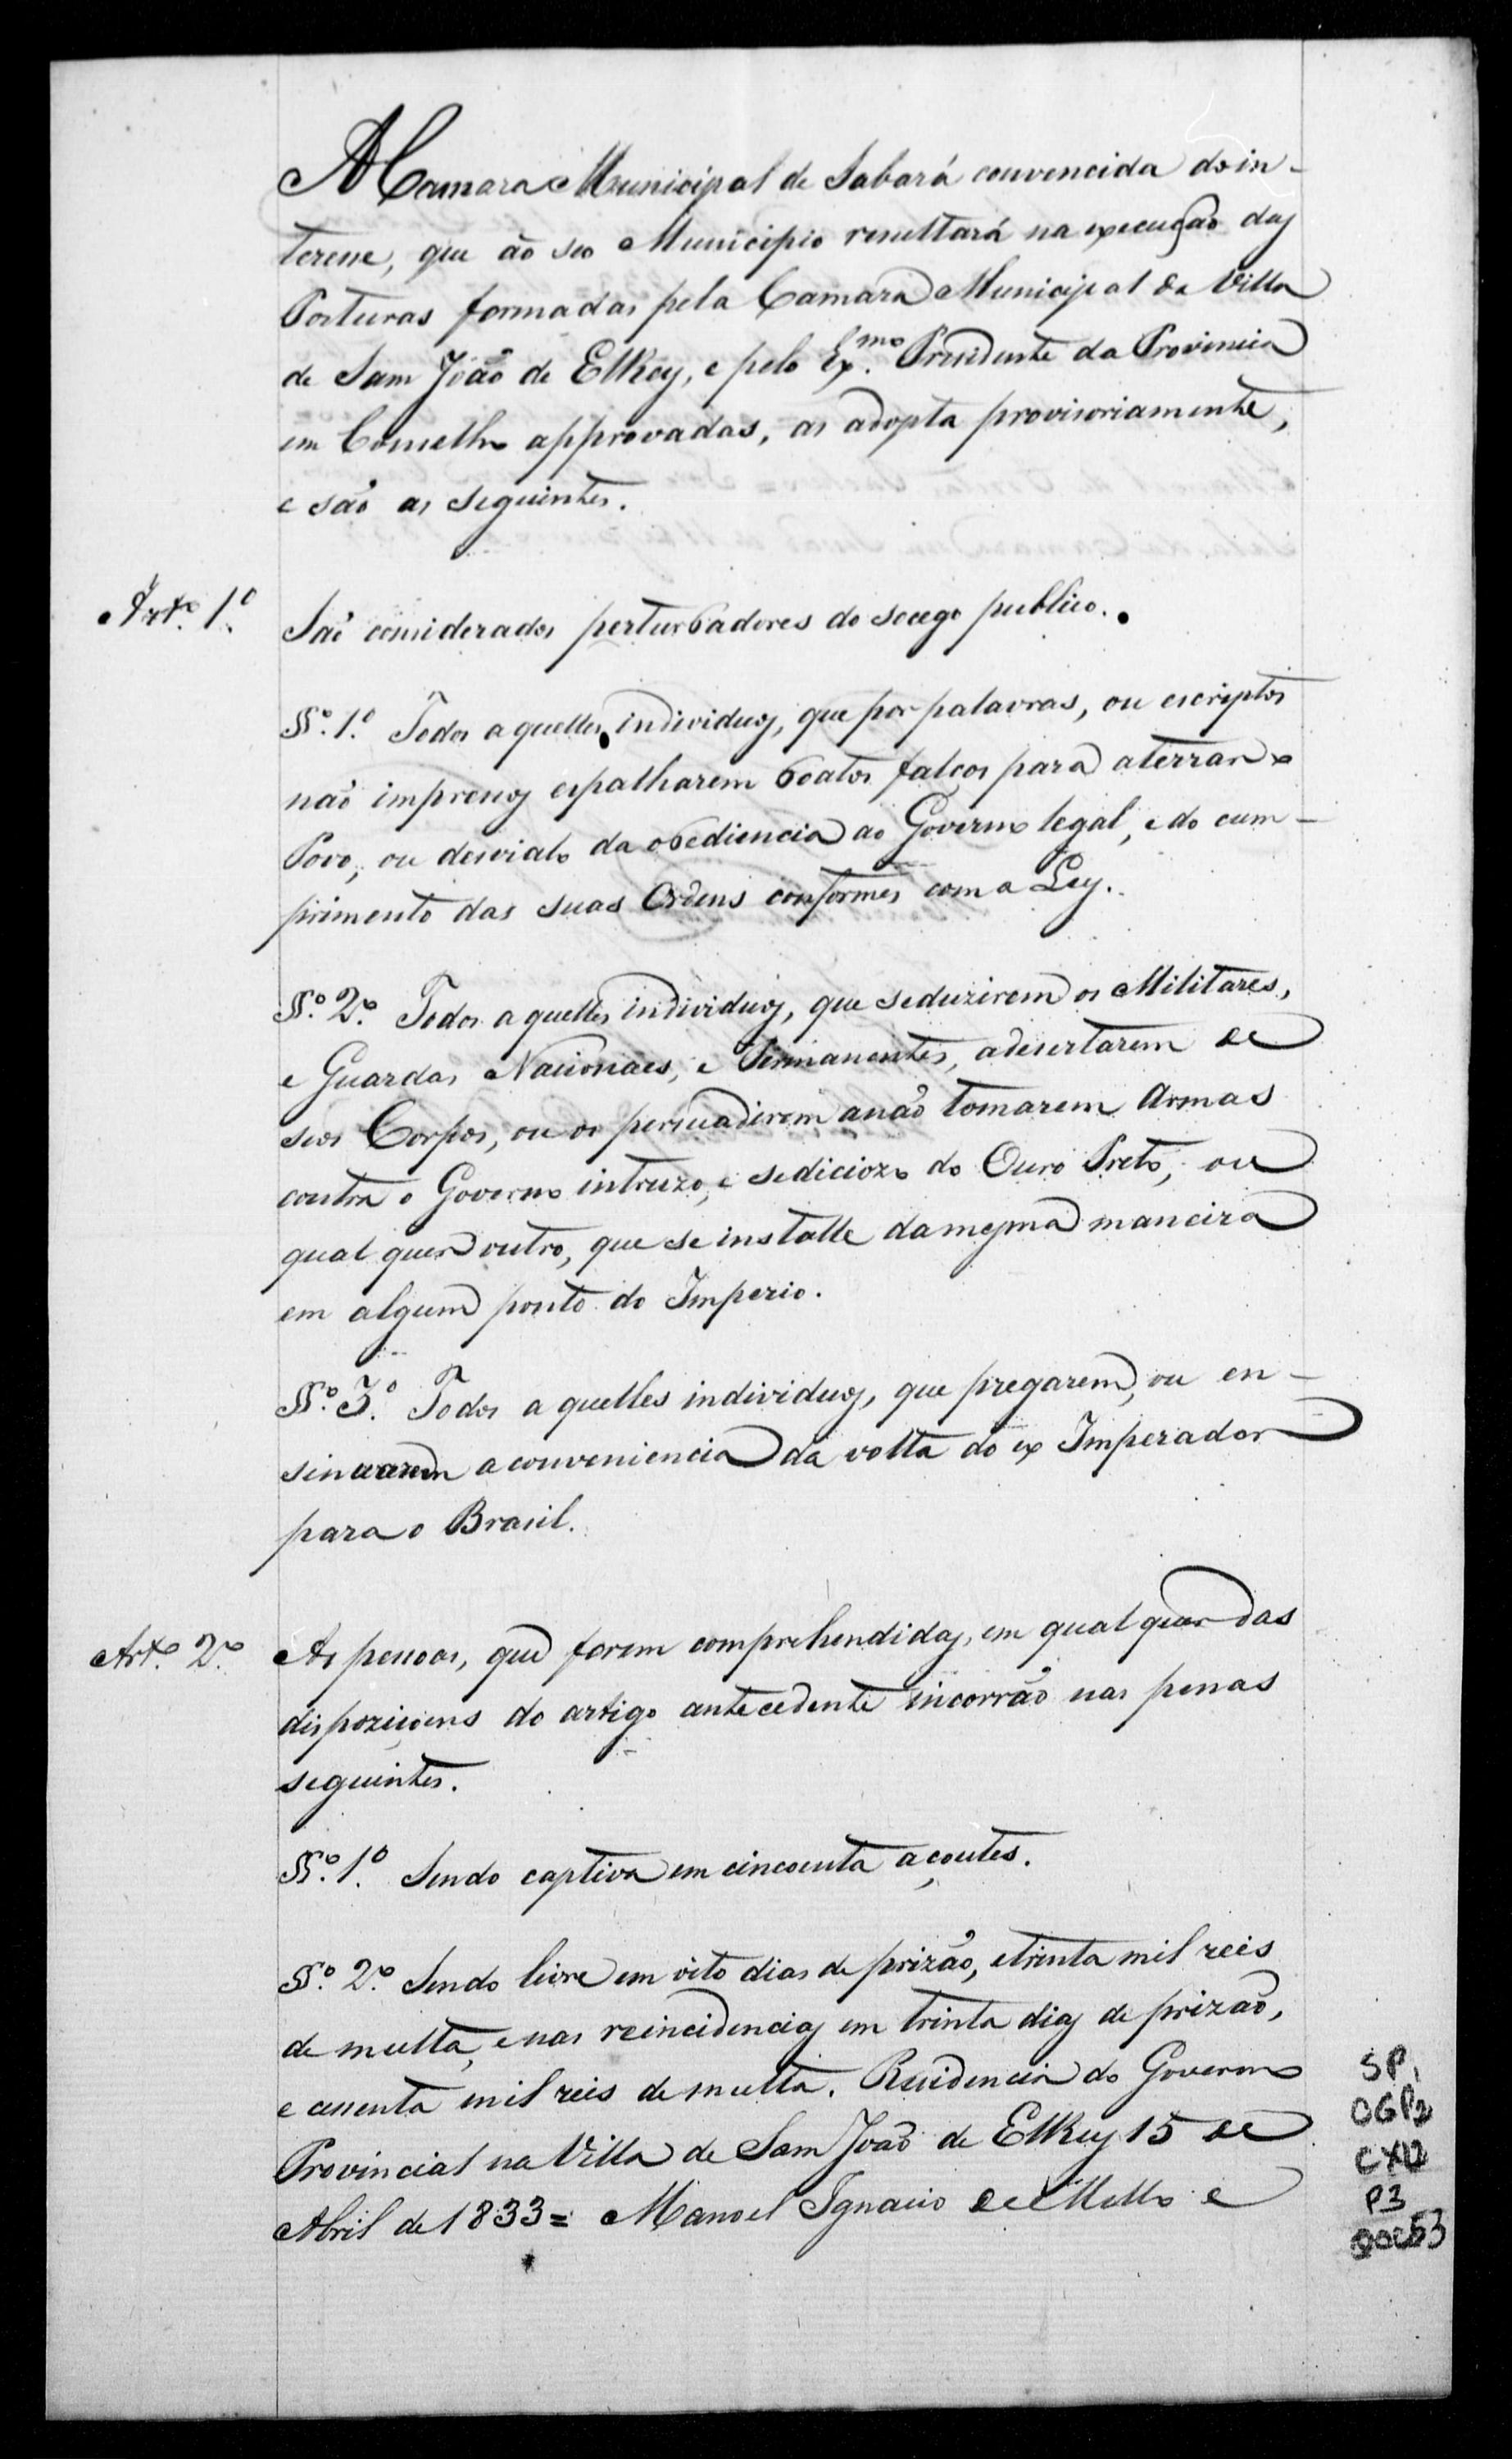 A Camara Municipal de Sabará convencida do in-
teresse, que ão seo Municipio resultará na execução das
Posturas formadas pela Camara Municipal da Villa
de Sam João de ElRey, e pelo Ex.mo Presidente da Provincia
em Conselho approvadas, as adopta provisoriamente,
e são as seguintes.
Art.º 1º. São considerados perturbadores do socego publico.
§º. 1º. Todos a quelles individuos, que por palavras, ou escriptos
não impressos espalharem boatos falços para aterrar o
Povo, ou desvialo da obediencia ao Governo legal, e do cum-
primento das suas Ordens conformes com a Ley.
§º. 2º. Todos a quelles individuos, que seduzirem os Militares,
e Guardas Nacionaes, e Permanentes, adesertarem de
seos Corpos, ou os persuadirem anão tomarem Armas
contra o Governo intruzo, e sediciozo do Ouro Preto, ou
qual quer outro, que se installe da mesma maneira
em algum ponto do Imperio.
§º. 3º. Todos a quelles individuos, que pregarem, ou en-
sinuarem a conveniencia da volta do ex Imperador
para o Brasil.
Art.º 2º. As pessoas, que forem comprehendidas, em qual quer das
dispoziçoens do artigo antecedente incorrão nas penas
seguintes.
§º. 1º. Sendo captiva em cincoenta açoutes.
§º. 2º. Sendo livre em oito dias de prizão, e trinta mil reis
de multa, e nas reincidencias em trinta dias de prizão,
e cessenta mil reis de multa. Residencia do Governo
Provincial na Villa de Sam João de ElRey 15 de
Abril de 1833 = Manoel Ignacio de Mello e
SP1
OGP2
CX12
P3
doc53